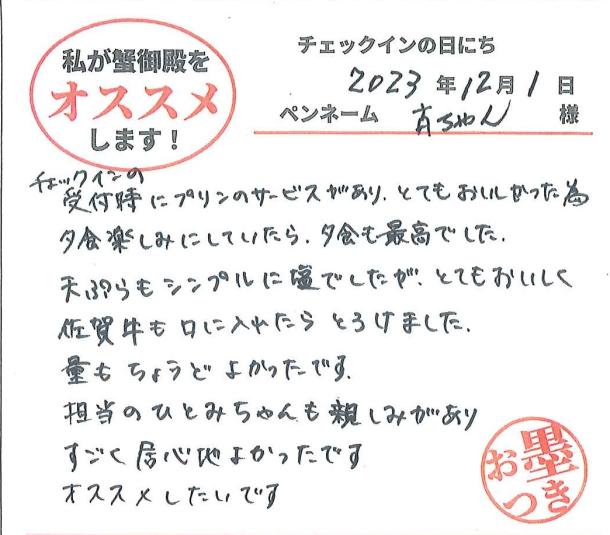 私が蟹御殿を
オススメ
します！
チェックインの日にち
2023年12月1日
ペンネーム 有ちゃん 様
チェックインの
受付時にプリンのサービスがあり、とてもおいしかった為
夕食楽しみにしていたら、夕食も最高でした。
天ぷらもシンプルに塩でしたが、とてもおいしく
佐賀牛も口に入れたらとろけました。
量もちょうどよかったです。
担当のひとみちゃんも親しみがあり
すごく居心地よかったです
オススメしたいです
お墨つき